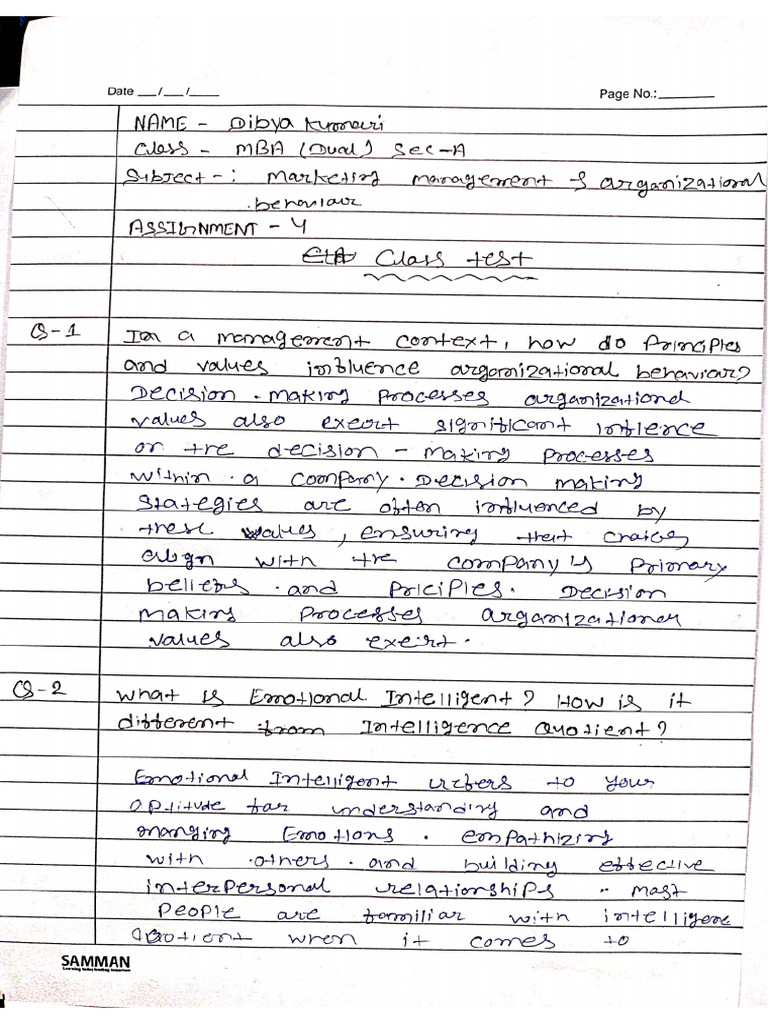 Date __/__/____ Page No.:________
NAME - Dibya Kumari
Class - MBA (Dual) Sec-A
Subject-: Marketing management & arganizational
behaviaur
ASSIGNMENT - 4
Class test
Q-1 In a management context, how do Principles
and values influence arganizational behaviour?
Decision making processes arganizational
values also exert significant inflence
on the decision - making processes
within a company. Decision making
stategies are often influenced by
these values, ensuring that craices
align with the company's Primary
beliefs and Priciples. Decision
making Processes arganizational
values also exert.
Q-2 What is Emotional Intelligent? How is it
different from Intelligence Quotient?
Emotional Intelligent refers to your
optitude for understanding and
manging Emotions. empathizing
with others and building effective
interpersonal relationships. mast
People are familiar with intelligene
Quotient when it comes to
SAMMAN
Learning today leading tomorrow